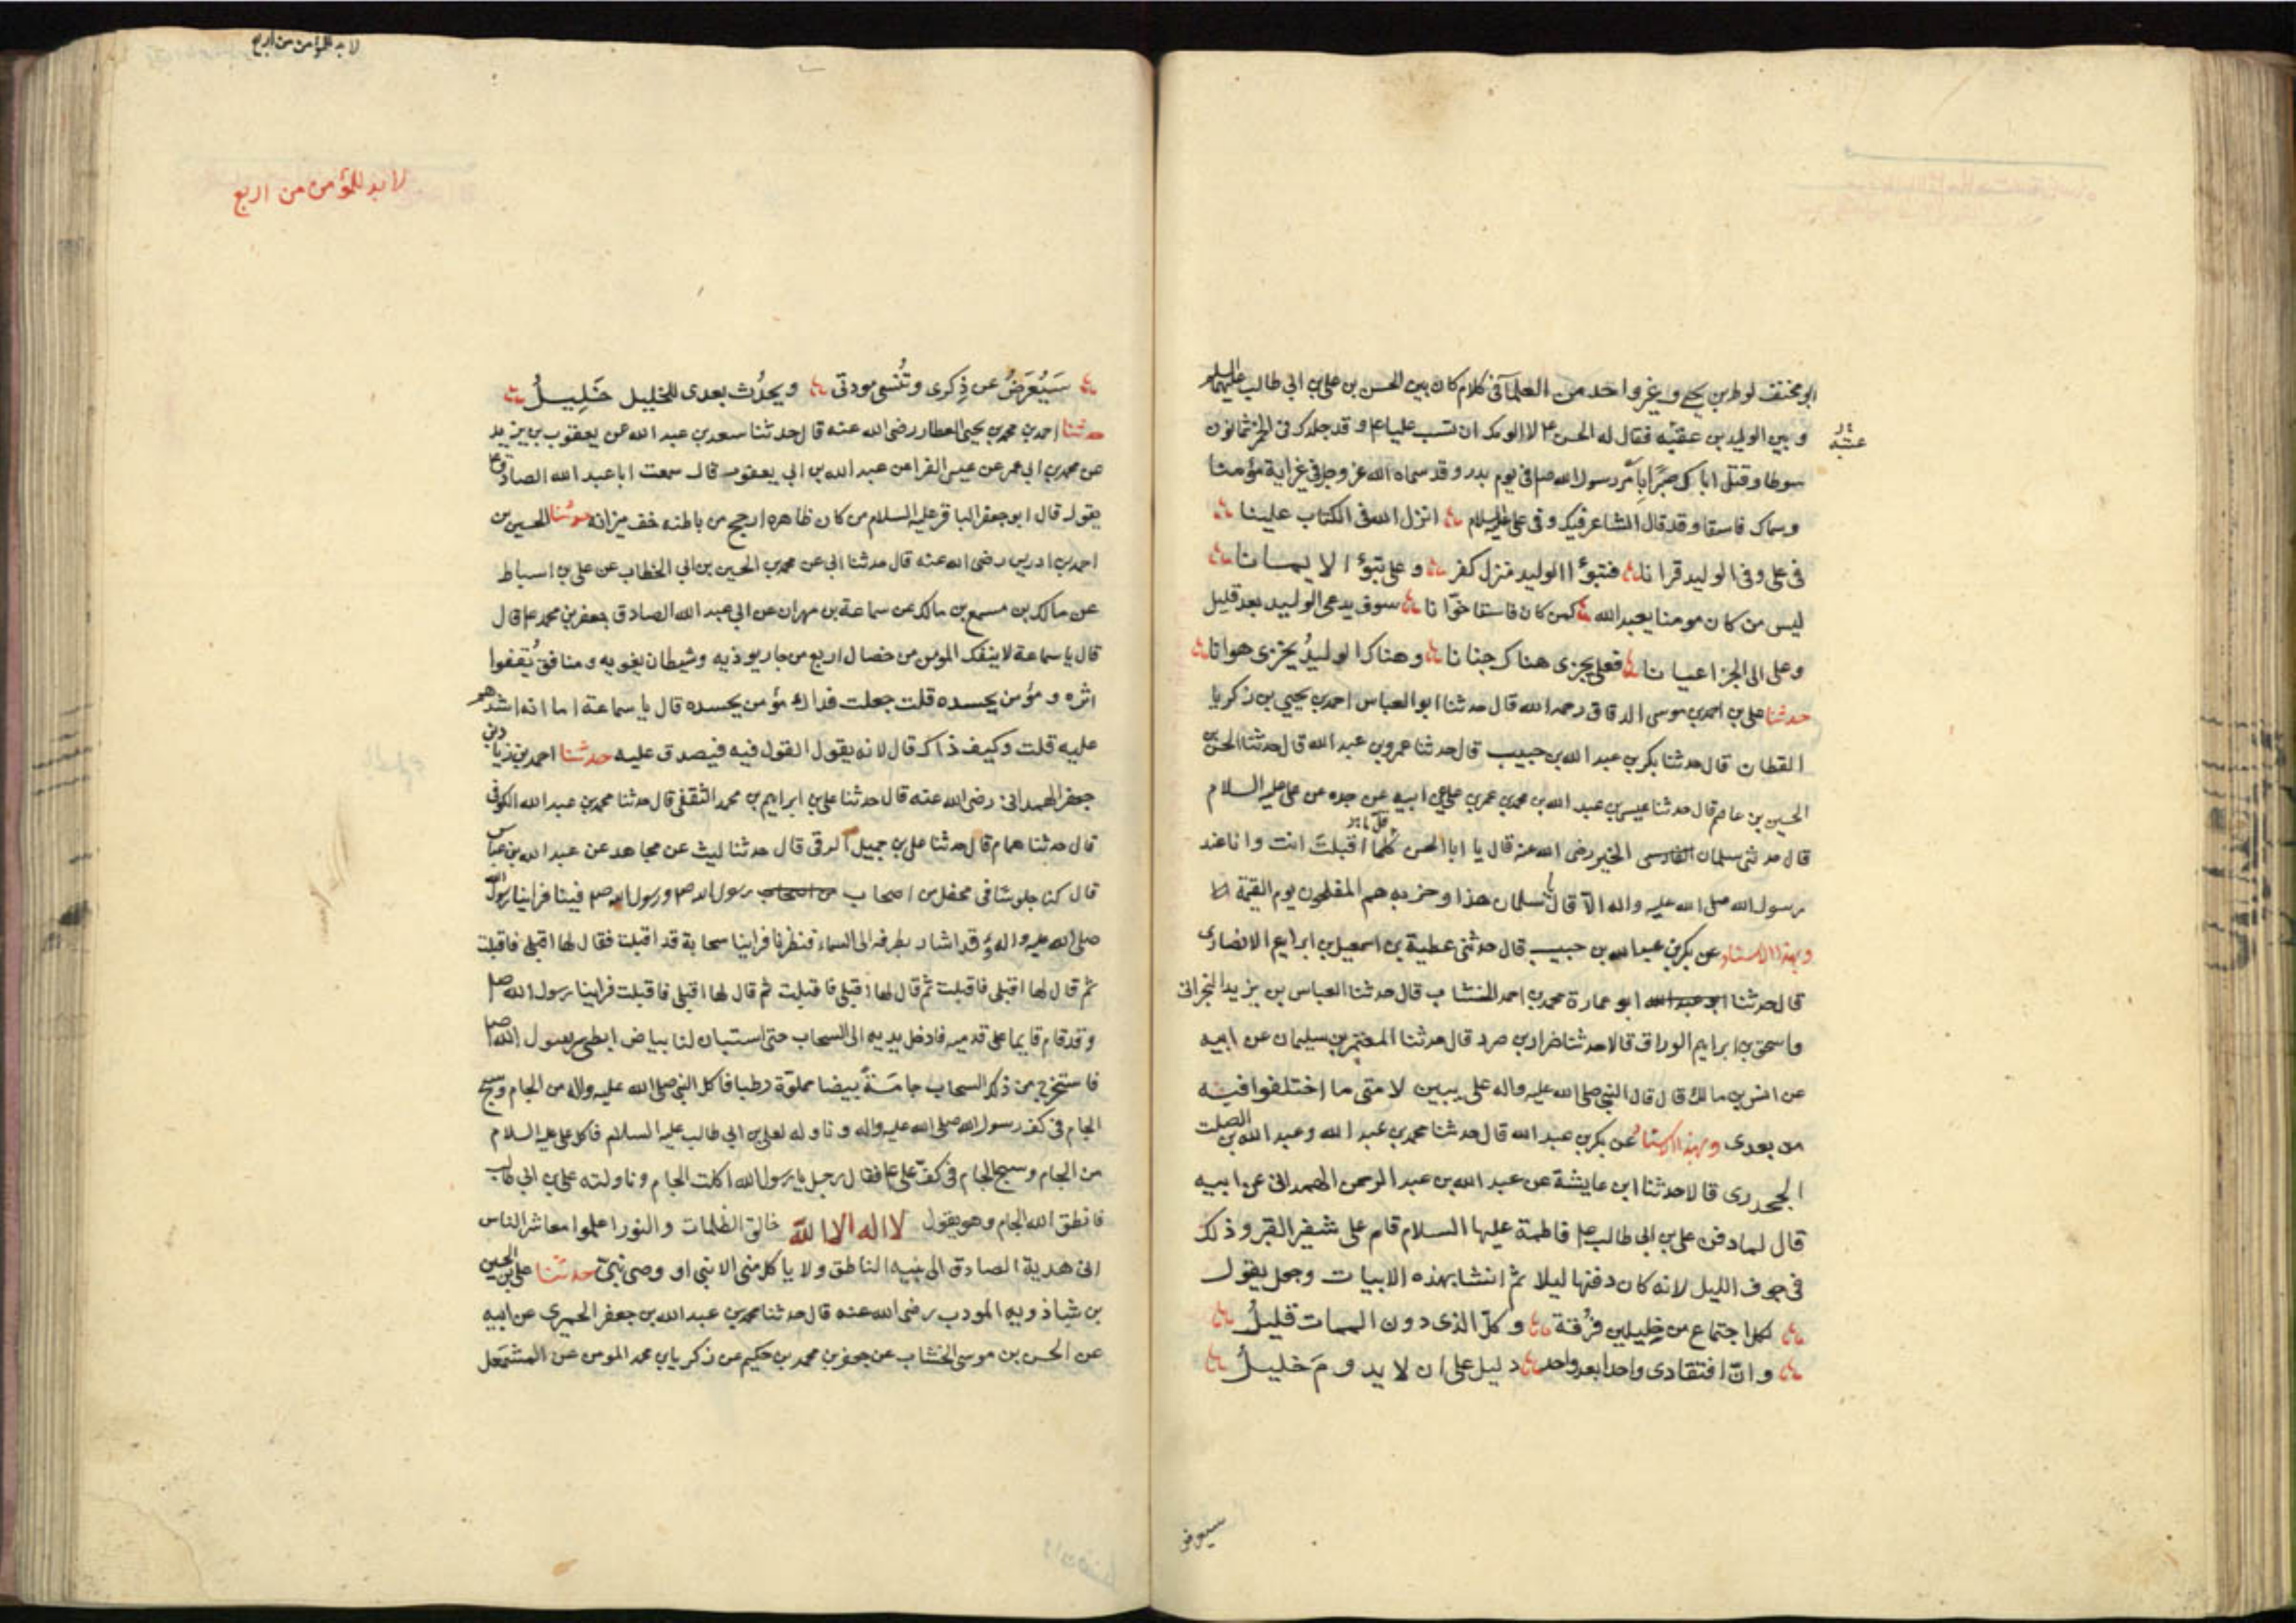 ابو مخنف لوط بن يحيى و غير واحد من العلماء فى كلام كان بين الحسن بن على بن ابى طالب عليهما السلم
و بين الوليد بن عقبه فقال له الحسن ع لا الومك ان تسب عليا ع و قد جلدك فى الخمر ثمانون
عتبه
سوطا و قتل اباك صبرًا بامر رسول الله ص فى يوم بدر و قد سماه الله عز وجل فى غير اية مؤمنا
و سماك فاسقا و قد قال الشاعر فيك و فى على عليه السلام انزل الله فى الكتاب علينا
فى على و فى الوليد قرانا فتبوّأ الوليد منزل كفر و على تبوّأ الايمانا
ليس من كان مومنا يعبد الله كمن كان فاسقا خوّانا سوف يدعى الوليد بعد قليل
و على الى الجزا عيانا فعلى يجزى هناك جنانا و هناك الوليدُ يجزى هوانا
حدثنا على بن احمد بن موسى الدقاق رحمه الله قال حدثنا ابو العباس احمد بن يحيى بن زكريا
القطان قال حدثنا بكر بن عبد الله بن حبيب قال حدثنا عمرو بن عبد الله قال حدثنا الحسن بن
الحسين بن عاصم قال حدثنا عيسى بن عبد الله بن محمد بن عمر بن على عن ابيه عن جده عن على عليه السلام
قال حدثنى سلمان الخير رضى الله عنه قال يا ابا الحسن اقبلت انت و انا عند
رسول الله صلى الله عليه و اله الا قال يا سلمان هذا و حزبه هم المفلحون يوم القيمة
و بهذا الاسناد عن بكر بن عبد الله بن حبيب قال حدثنى عطية بن اسمعيل بن ابراهيم الانصارى
قال حدثنا ابو عبد الله ابو عمارة محمد بن احمد الخشاب قال حدثنا العباس بن يزيد النجرانى
و اسحق بن ابراهيم الوراق قالا حدثنا ضرار بن صرد قال حدثنا المعتمر بن سليمان عن ابيه
عن انس بن مالك قال قال النبى صلى الله عليه واله على يبين لامتى ما اختلفوا فيه
من بعدى و بهذا الاسناد عن بكر بن عبد الله قال حدثنا محمد بن عبد الله و عبد الله بن الصلت
الجحدرى قالا حدثنا ابن عايشة عن عبد الله بن عبد الرحمن الهمدانى عن ابيه
قال لما دفن على بن ابى طالب ع فاطمة عليها السلام قام على شفير القبر و ذلك
فى جوف الليل لانه كان دفنها ليلا ثم انشا بهذه الابيات و جعل يقول
لكل اجتماع من خليلين فُرقة و كلّ الذى دون الممات قليلُ
و انّ افتقادى واحدا بعد واحد دليل على ان لا يدومَ خليلُ
لا بد للمؤمن من اربع
لا بد للمؤمن من اربع
سَيُعرَضُ عن ذِكرى و تُنسى مودتى و يحدُث بعدى للخليل خَلِيلُ
حدثنا احمد بن محمد بن يحيى العطار رضى الله عنه قال حدثنا سعد بن عبد الله عن يعقوب بن يزيد
عن محمد بن ابى عمر عن عيسى الفرا عن عبد الله بن ابى يعفور قال سمعت ابا عبد الله الصادق ع
يقول قال ابو جعفر الباقر عليه السلام من كان ظاهره ارجح من باطنه خف ميزانه حدثنا الحسين بن
احمد بن ادريس رضى الله عنه قال حدثنا ابى عن محمد بن الحسين بن ابى الخطاب عن على بن اسباط
عن مالك بن مسمع بن مالك عن سماعة بن مهران عن ابى عبد الله الصادق جعفر بن محمد ع قال
قال يا سماعة لا ينفك المؤمن من خصال اربع من جار يوذيه و شيطان يغويه و منافق يُقفوا
اثره و مؤمن يحسده قلت جعلت فداك مؤمن يحسده قال يا سماعة اما انه اشدهم
عليه قلت و كيف ذاك قال لانه يقول القول فيه فيصدق عليه حدثنا احمد بن زياد بن
جعفر الهمدانى رضى الله عنه قال حدثنا على بن ابراهيم بن محمد الثقفى قال حدثنا محمد بن عبد الله الكوفى
قال حدثنا همام قال حدثنا على بن جميل الرقى قال حدثنا ليث عن مجاهد عن عبد الله بن عباس
قال كنا جلوسا فى محفل من اصحاب رسول الله ص و رسول الله ص فينا فراينا رسول الله
صلى الله عليه و اله و قد اشار بطرفه الى السماء فنظرنا فراينا سحابة قد اقبلت فقال لها اقبلى فاقبلت
ثم قال لها اقبلى فاقبلت ثم قال لها اقبلى فاقبلت ثم قال لها اقبلى فاقبلت فراينا رسول الله ص
و قد قام قايما على قدميه فادخل يديه الى السحاب حتى استبان لنا بياض ابطى رسول الله ص
فاستخرج من ذلك السحاب جامَةً بيضا مملوّة رطبا فاكل النبى صلى الله عليه واله من الجام و سبح
الجام فى كف رسول الله صلى الله عليه واله و ناوله لعلى بن ابى طالب عليه السلام فاكل على عليه السلام
من الجام و سبح الجام فى كفّ على ع فقال رجل يا رسول الله اكلت الجام و ناولته على بن ابى طالب
فانطق الله الجام و هو يقول لا اله الا الله خالق الظلمات و النور اعلموا معاشر الناس
انى هدية الصادق الى نبيه الناطق و لا ياكل منى الا نبى او وصى نبىّ حدثنا على بن الحسين
بن شاذويه المودب رضى الله عنه قال حدثنا محمد بن عبد الله بن جعفر الحميرى عن ابيه
عن الحسن بن موسى الخشاب عن جعفر بن محمد بن حكيم عن زكريا بن محمد المومن عن المشمعل